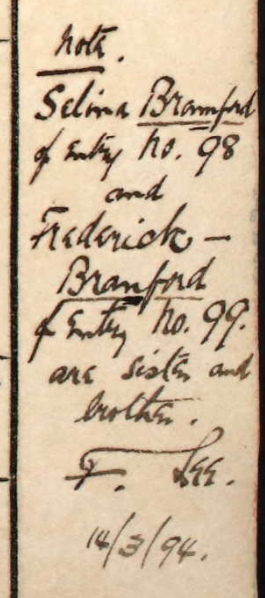 Note.
Selina Bramford
of Entry No. 98
and
Frederick –
Branford
of Entry No. 99.
are sister and
brother.
F. Lee.
14/3/94.